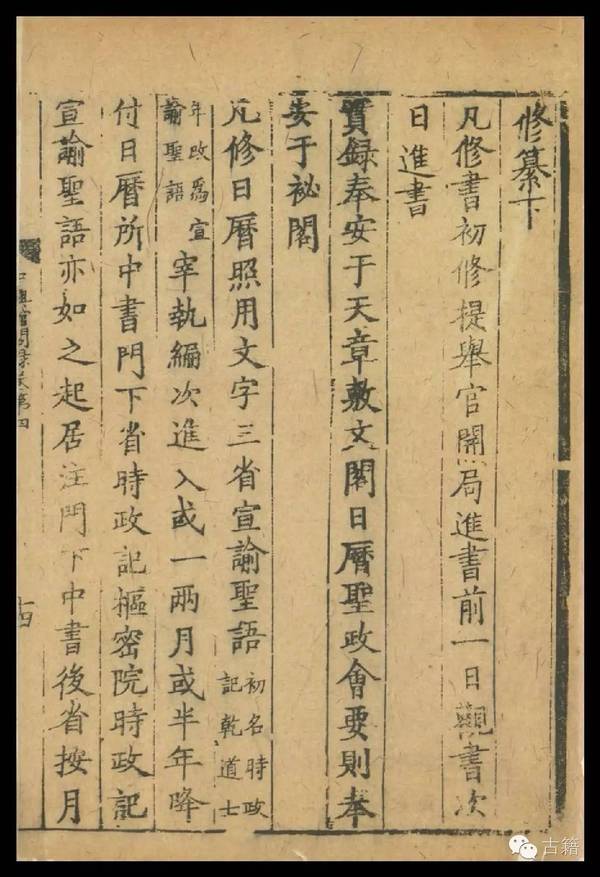 修纂下
凡修書初修提舉官開局進書前一日觀書次
日進書
實録奉安于天章敷文閣日曆聖政會要則奉
安于祕閣
凡修日曆照用文字三省宣諭聖語初名時政記乾道士
年改爲宣諭聖語宰執編次進入或一兩月或半年降
付日曆所中書門下省時政記樞密院時政記
宣諭聖語亦如之起居注門下中書後省按月
館閣録卷第四
十四
古籍